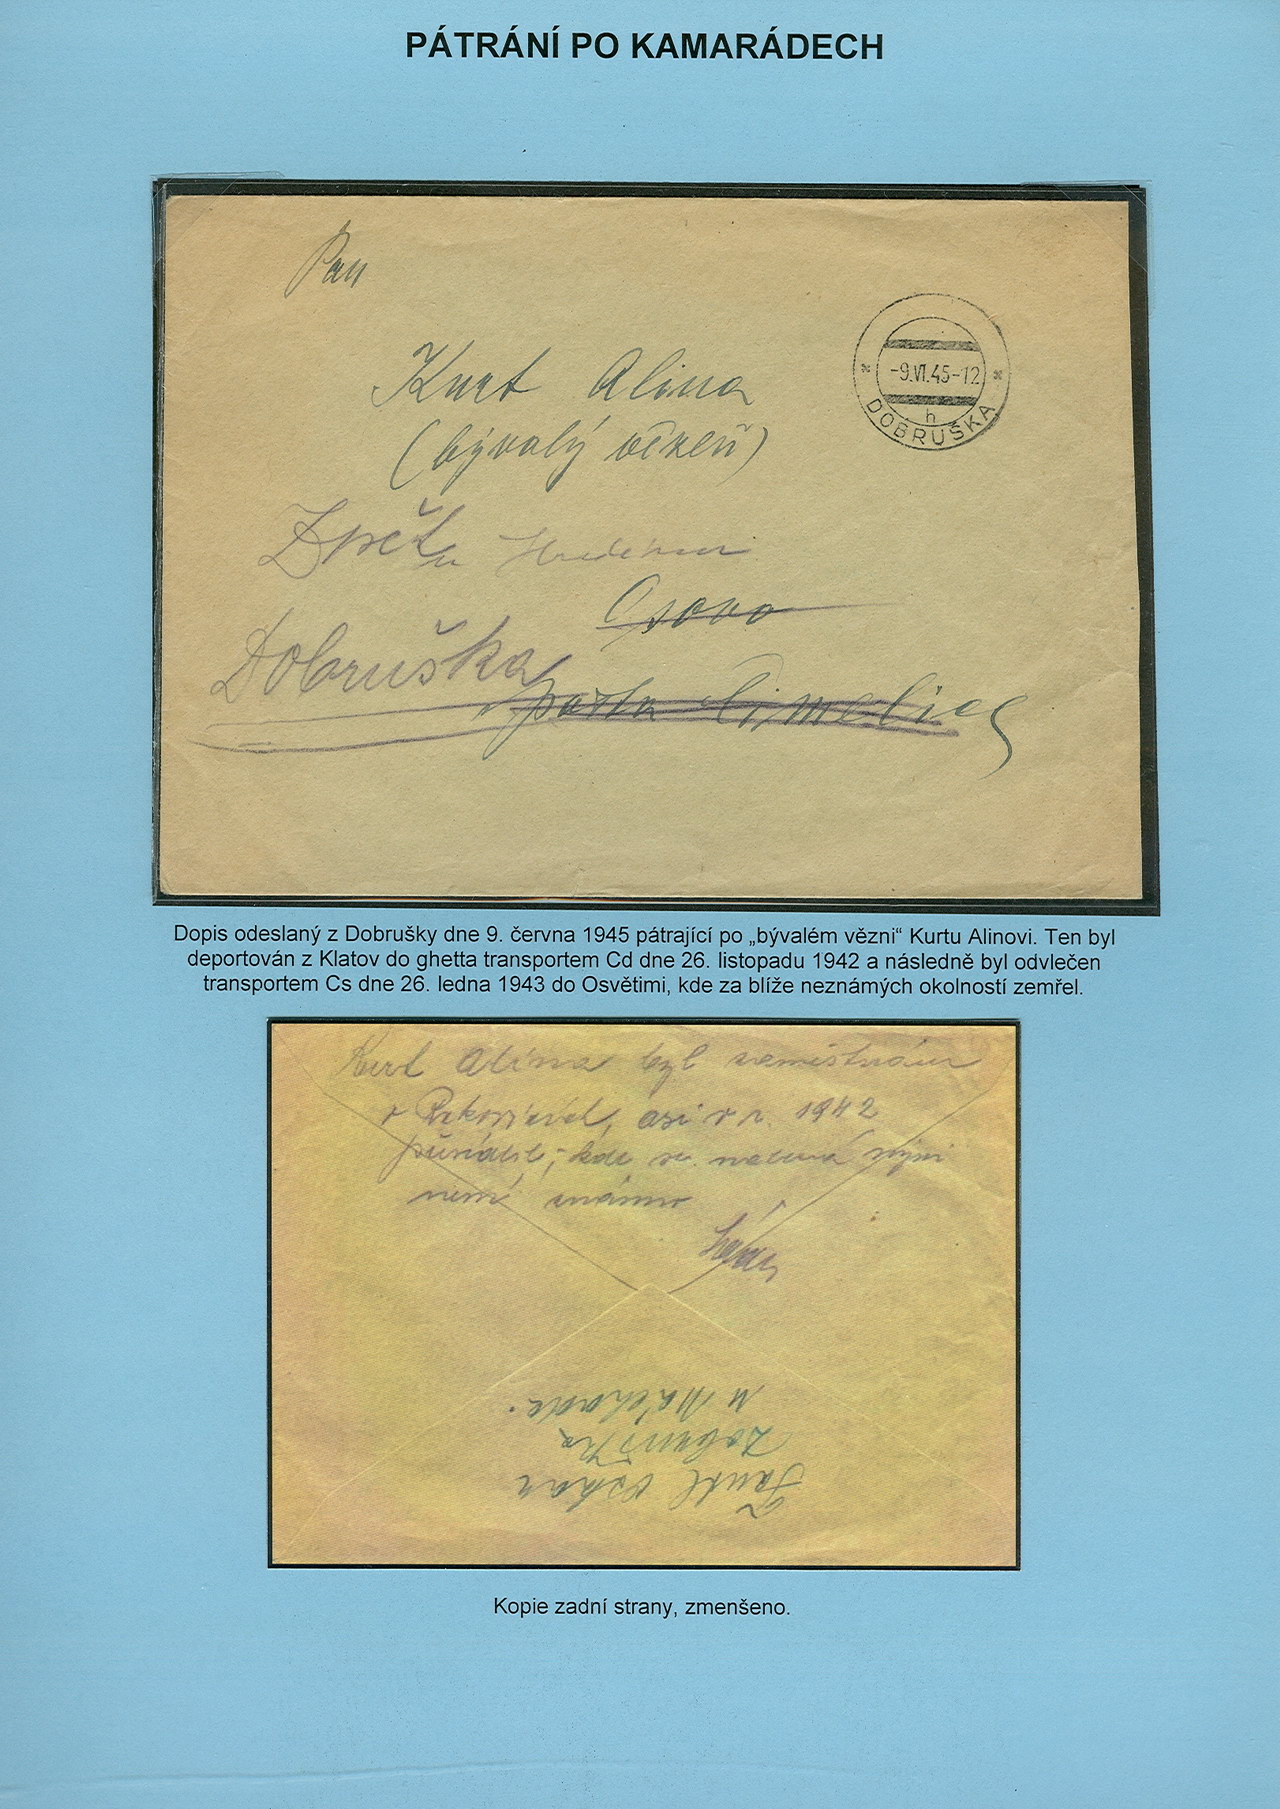 PÁTRÁNÍ PO KAMARÁDECH
Pan
Kurt Alina
(bývalý vězeň)
-9.VI.45-12
h
DOBRUŠKA
Zpět
Osovo
Dobruška
pošta Čimelice
Dopis odeslaný z Dobrušky dne 9. června 1945 pátrající po „bývalém vězni“ Kurtu Alinovi. Ten byl
deportován z Klatov do ghetta transportem Cd dne 26. listopadu 1942 a následně byl odvlečen
transportem Cs dne 26. ledna 1943 do Osvětimi, kde za blíže neznámých okolností zemřel.
Kurt Alina byl zaměstnán
v asi v r. 1942
kde se nyní
není známo
Oskar
Dobruška
u Náchoda.
Kopie zadní strany, zmenšeno.